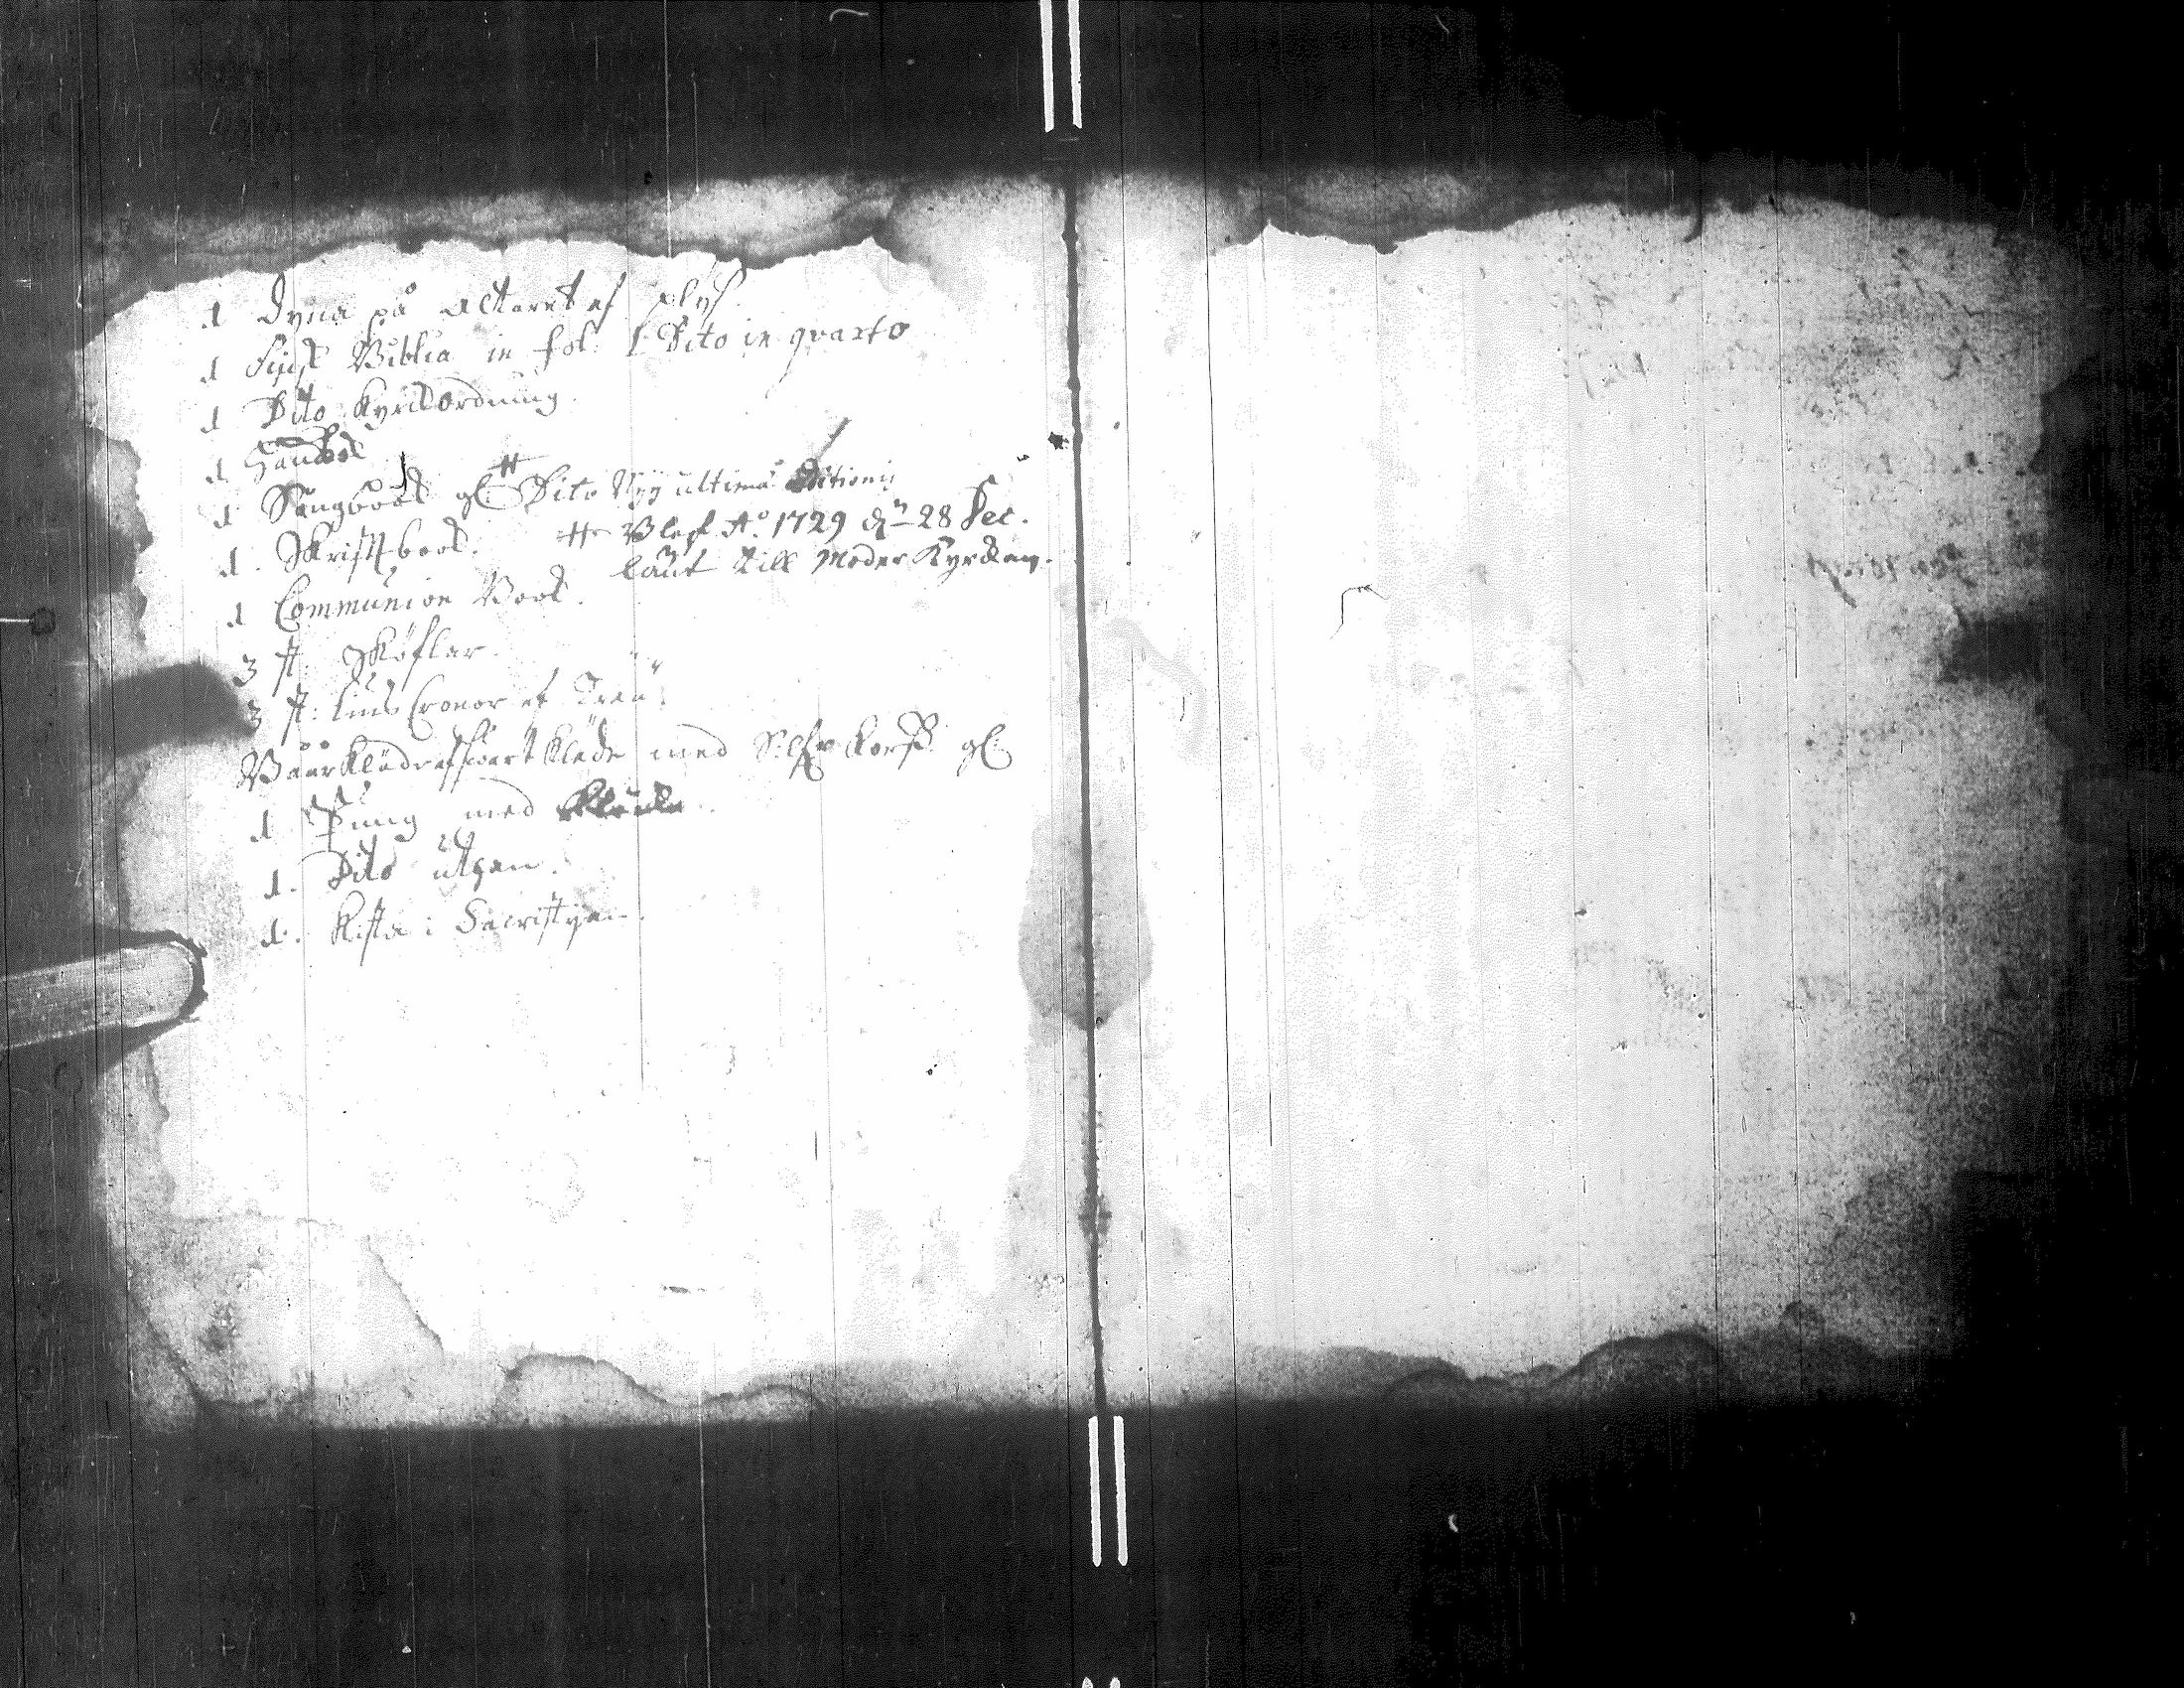 1 Dyna på Altaret af plys.
1 Finsk Biblia in fol: 1 Dito in quarto
1 Dito Kyrckordning.
1 Handbok
1 Sångbook gl: # Dito Nyy ultimæ Editionis
1. Skrifftbook. # Blef A:o 1729 d:n 28 Dec.
lånt till Moder Kyrckan.
1 Communion Book.
3 st: Skoflar.
3 st: lius Cronor af Trää.
Baarkläde af swart kläde med Silfr korss gl:
1. Pung med
1. Dito utgan.
1. Kista i Sacristyan.